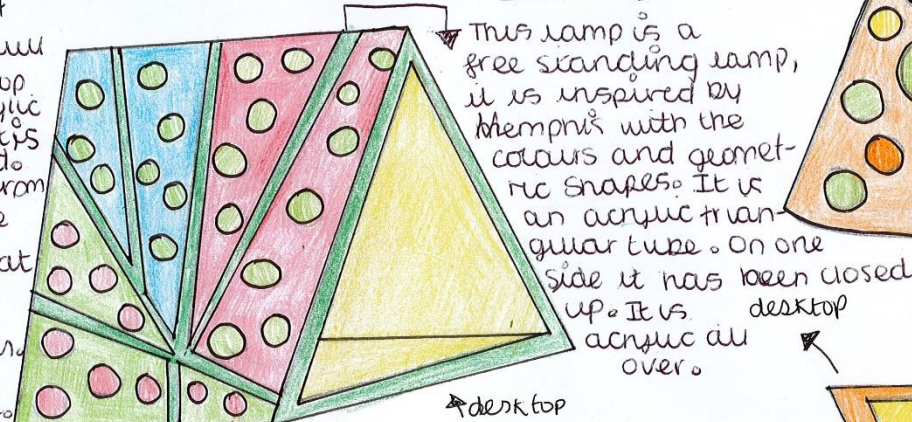 This lamp is a
free standing lamp,
it is inspired by
Memphis with the
colours and geomet-
ric shapes. It is
an acrylic trian-
gular tube. On one
side it has been closed
up. It is
acrylic all
over.
desktop
desktop